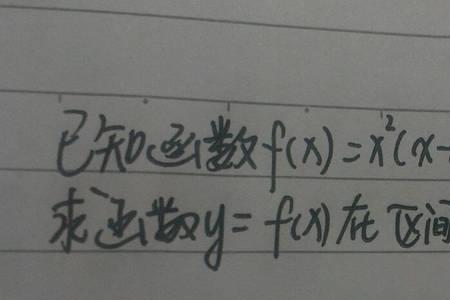 已知函数f(x)=x²(x-
求函数y=f(x)在区间